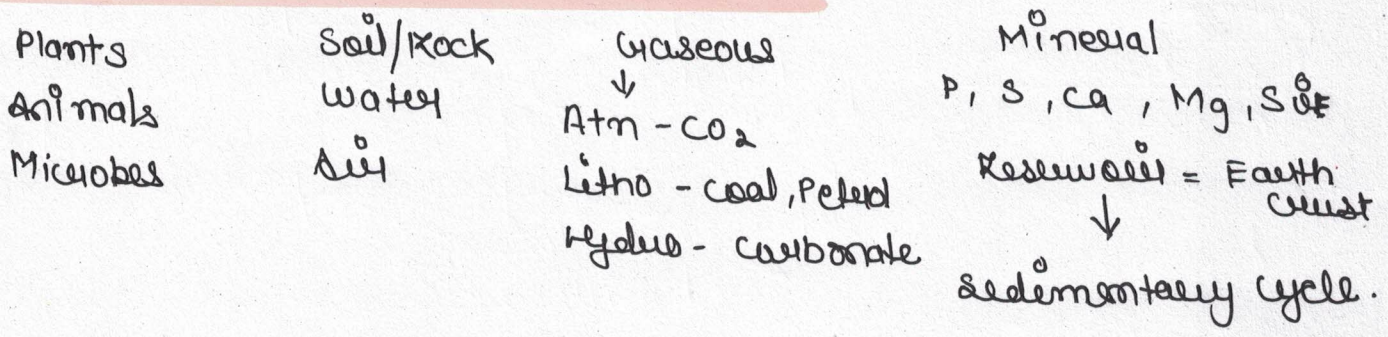 Plants
Animals
Microbes
Soil/Rock
Water
Air
Gaseous
↓
Atm - CO2
Litho - coal, Petrol
Hydro - Carbonate
Mineral
P, S, Ca, Mg,
Reservoir = Earth
crust
↓
Sedimentary cycle.